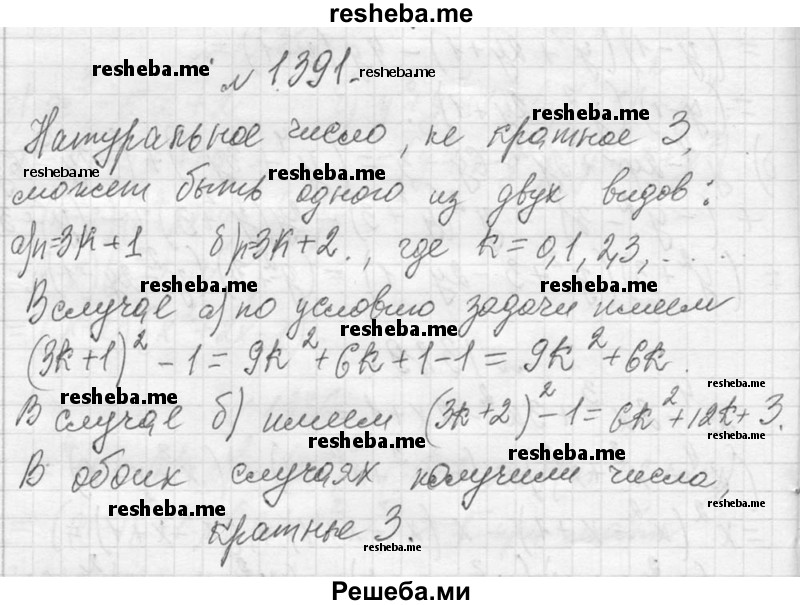 resheba.me
resheba.me № 1.391. resheba.me
Натуральное число, не кратное 3, resheba.me
resheba.me resheba.me
может быть одного из двух видов:
а) n=3k+1 б) n=3k+2., где k=0,1,2,3,....
resheba.me resheba.me
В случае а) по условию задачи имеем
resheba.me
(3k+1)² - 1 = 9k² + 6k + 1 - 1 = 9k² + 6k.
resheba.me resheba.me
В случае б) имеем (3k+2)² - 1 = 6k² + 12k + 3.
resheba.me resheba.me
resheba.me
В обоих случаях получили числа,
resheba.me resheba.me
кратные 3.
resheba.me resheba.me
Решеба.ми